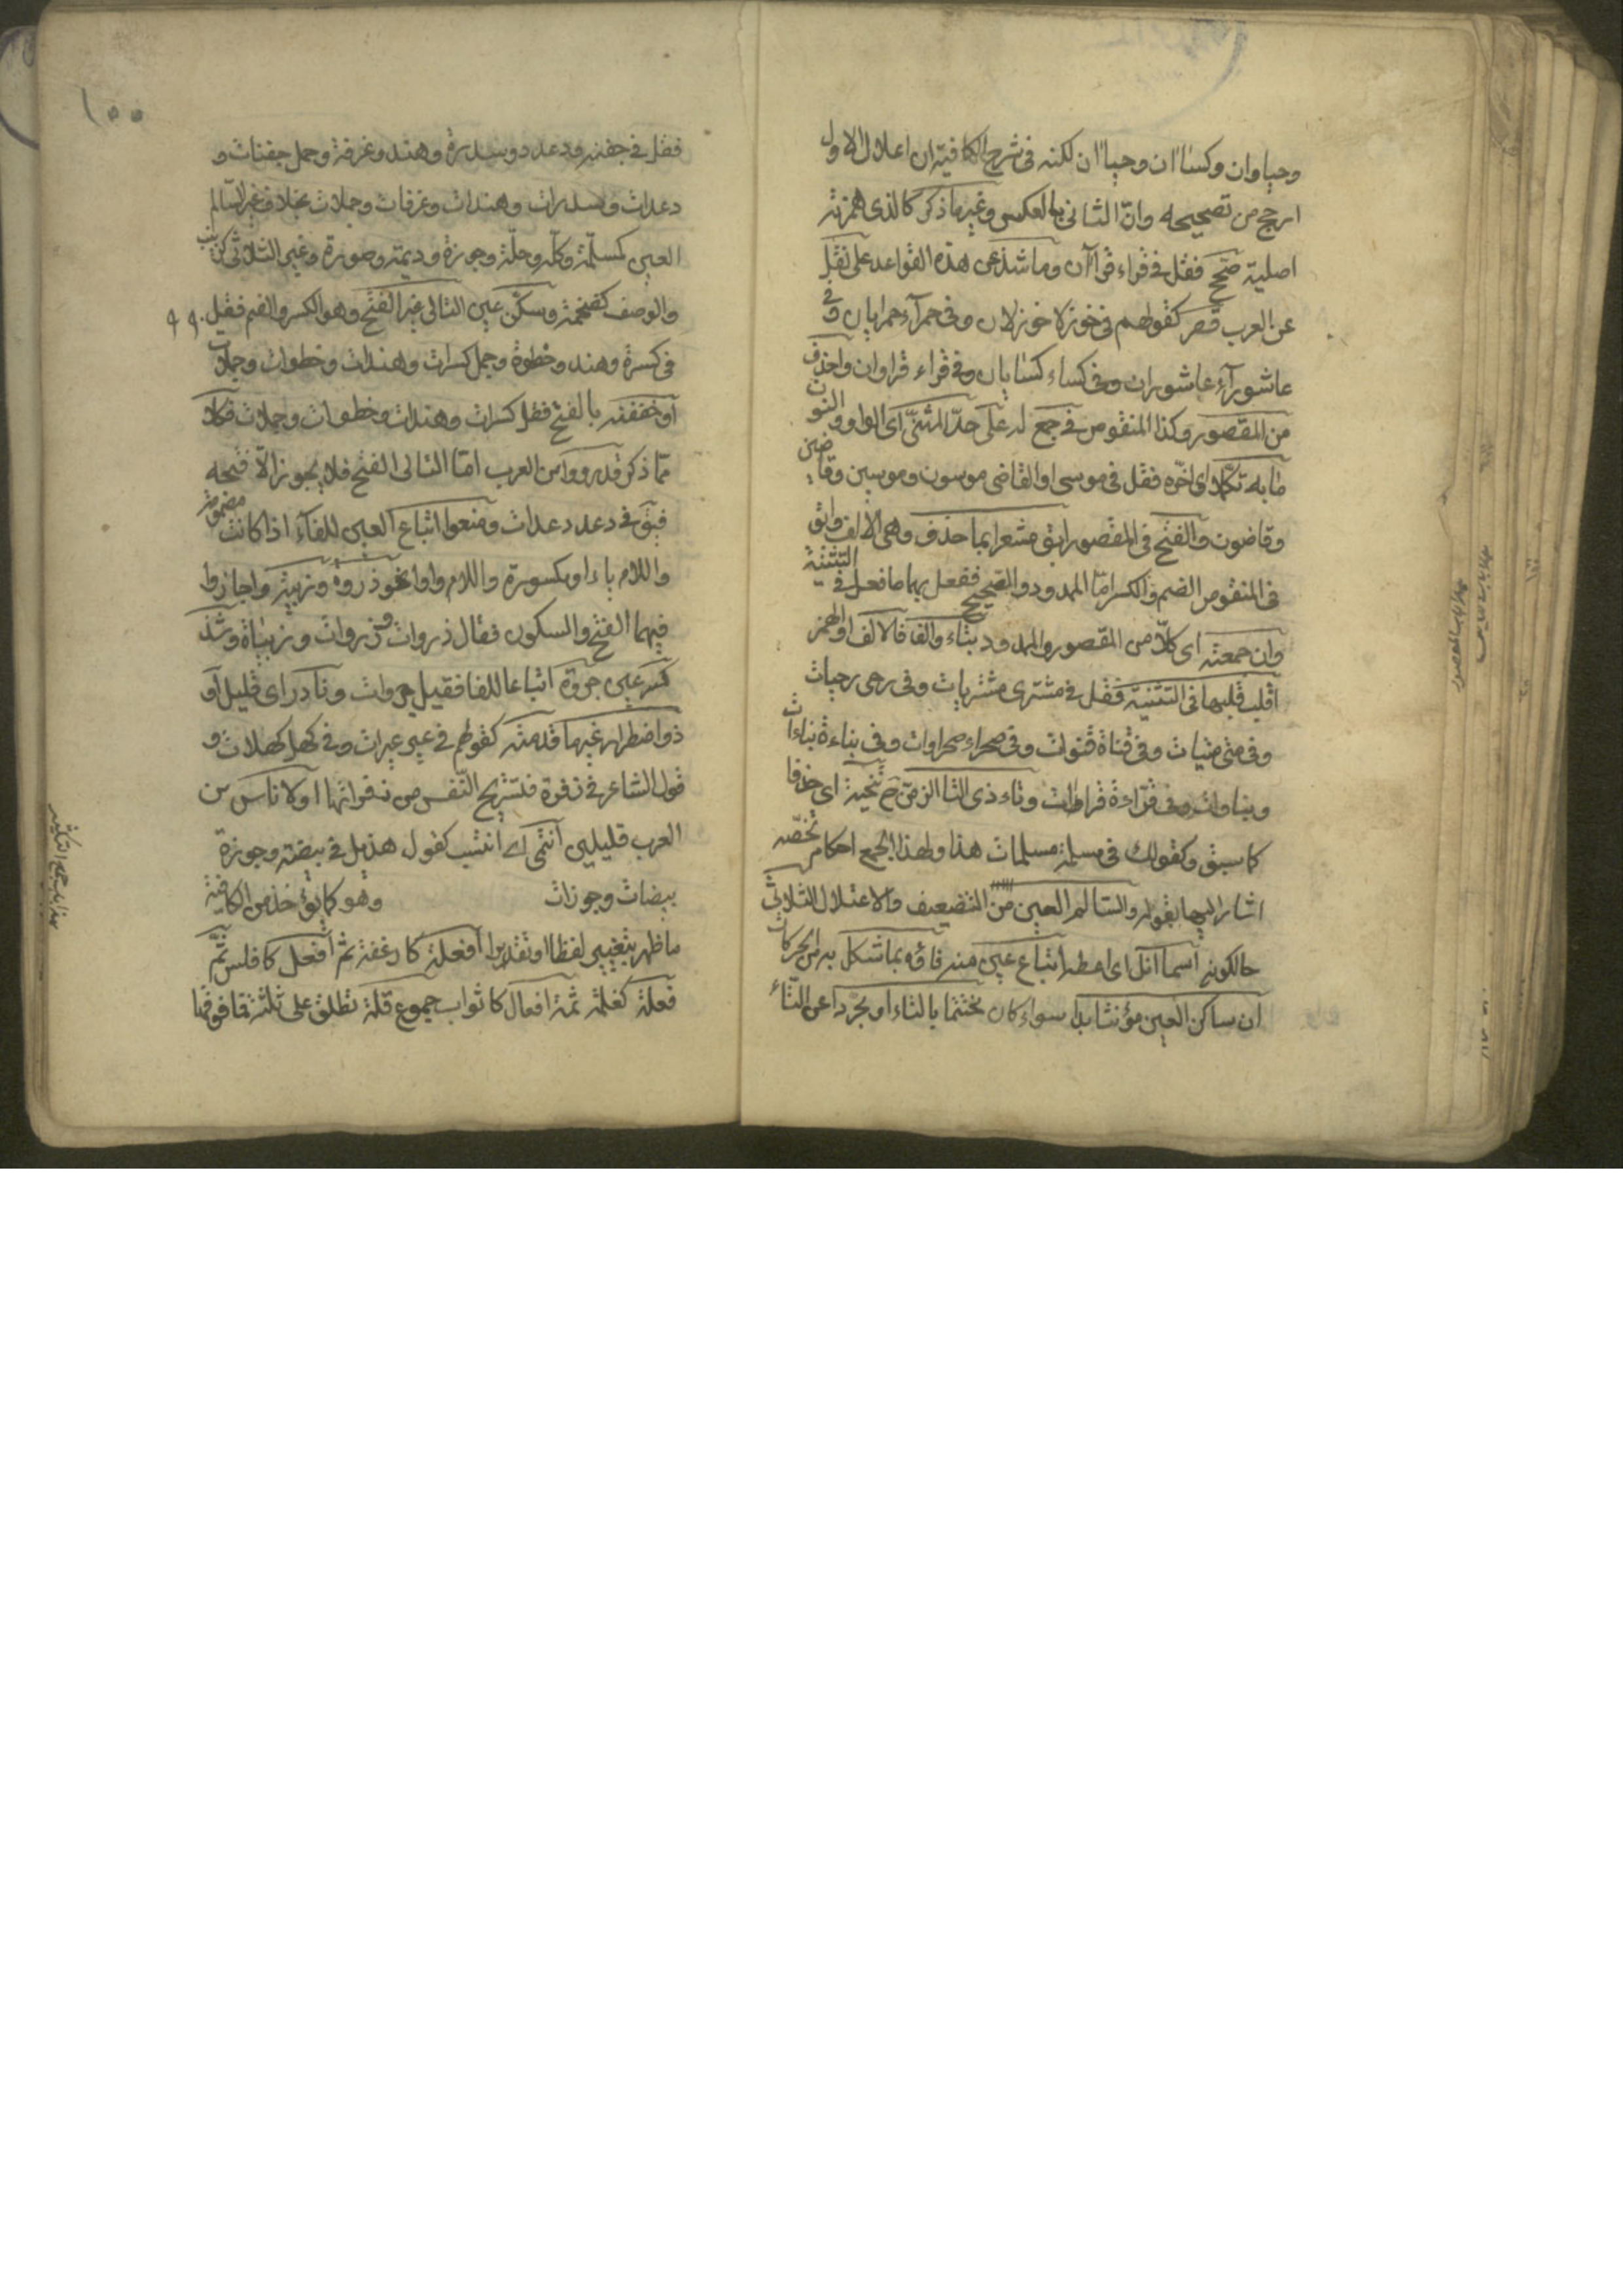 وحياوان وكساان وحياان لكنه فى شرح الكافية ان اعلال الاول
ارجح من تصحيحه وان الثانى بالعكس وغير ما ذكر كالذى همزته
اصلية صحح فقل فى قراء قراآن وما شذ عن هذه القواعد على نقل
عن العرب قصر كقولهم فى خوزلا خوزلان وفى حمرآء حمرايان وفى
عاشورآء عاشوران وفى كساء كسايان وفى قراء قراوان واحذف
من المقصور وكذا المنقوص فى جمع له على حد المثنى اى الواو والنون
ما به تكملا اى اخره فقل فى موسى والقاضى موسون وموسين وقاضين
وقاضون والفتح فى المقصور ابق مشعرا بما حذف وهى الالف وابق
فى المنقوص الضم والكسر اما الممدود والصحيح فيفعل بهما ما فعل فى التثنية
وان جمعته اى كلا من المقصور والممدود بتاء والف فالالف او الهمز
اقلب قلبها فى التثنية فقل فى مشترى مشتريات وفى رحى رحيات
وفى متى متيات وفى قناة قنوات وفى صحراء صحراوات وفى بناءة بناءات
وبناوات وفى قراءة قراءات وتاء ذى التا الزمن ح تنحية اى حذفا
كما سبق وكقولك فى مسلمة مسلمات هذا ولهذا الجمع احكام تخصه
اشار اليها بقوله والسالم العين من التضعيف والاعتلال الثلاثى
حالكونه اسما انل اى اعطه اتباع عين منه فاؤه بما شكل به من الحركات
ان ساكن العين مؤنثا بدا سواء كان مختتما بالتاء او مجردا عن التاء
١٥٥
فقل فى جفنة ودعد وسدرة وهند وغرفة وجمل جفنات و
دعدات وسدرات وهندات وغرفات وجملات بخلاف غير السالم
العين كسلة وكلة وحلة وجوزة وديمة وصورة وغير الثلاثى كزينب
والوصف كضخمة وسكن عين التالى غير الفتح وهو الكسر والضم فقل
فى كسرة وهند وخطوة وجمل كسرات وهندات وخطوات وجملات
او خففه بالفتح فقل كسرات وهندات وخطوات وجملات فكلا
مما ذكر قد رووا من العرب اما التالى الفتح فلا يجوز الا فتحه
فيق فى دعد دعدات ومنعوا اتباع العين للفاء اذا كانت مضمومة
واللام ياء او مكسورة واللام واوا نحو ذروة وزبية واجازوا
فيهما الفتح والسكون فقال ذروات وذروات وزبياة وشذ
كسر عين جروة اتباعا للفا فقيل جروات ونادر اى قليل او
ذو اضطرار غير ما قدمته كقولهم فى عير عيرات وفى كهل كهلات و
قول الشاعر فى زفرة فتستريح النفس من زفراتها او لا ناس من
العرب قليلين انتمى اى انتسب كقول هذيل فى بيضة وجوزة
بيضات وجوزات وهو كما يؤخذ من الكافية
ما ظهر بتغيير لفظا او تقديرا افعلة كارغفة ثم افعل كافلس ثم
فعلة كغلمة ثمة افعال كاثواب جموع قلة تطلق على ثلثة فما فوقها
هذا باب جمع التكسير